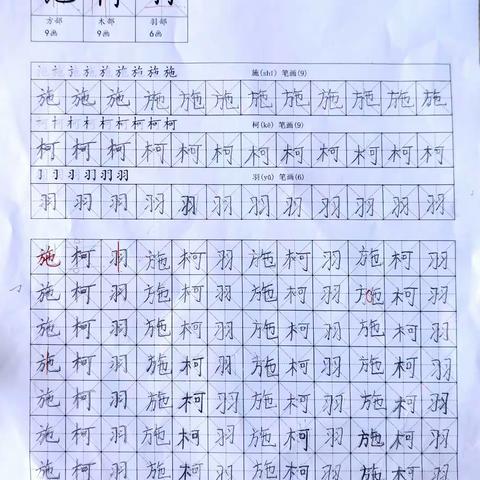 施 柯 羽
方部 木部 羽部
9画 9画 6画
施(shī) 笔画(9)
施 施 施 施 施 施 施 施 施 施 施 施
柯(kē) 笔画(9)
柯 柯 柯 柯 柯 柯 柯 柯 柯 柯 柯 柯
羽(yǔ) 笔画(6)
羽 羽 羽 羽 羽 羽 羽 羽 羽 羽 羽 羽
施 柯 羽 施 柯 羽 施 柯 羽 施 柯 羽
施 柯 羽 施 柯 羽 施 柯 羽 施 柯 羽
施 柯 羽 施 柯 羽 施 柯 羽 施 柯 羽
施 柯 羽 施 柯 羽 施 柯 羽 施 柯 羽
施 柯 羽 施 柯 羽 施 柯 羽 施 柯 羽
施 柯 羽 施 柯 羽 施 柯 羽 施 柯 羽
施 柯 羽 施 柯 羽 施 柯 羽 施 柯 羽